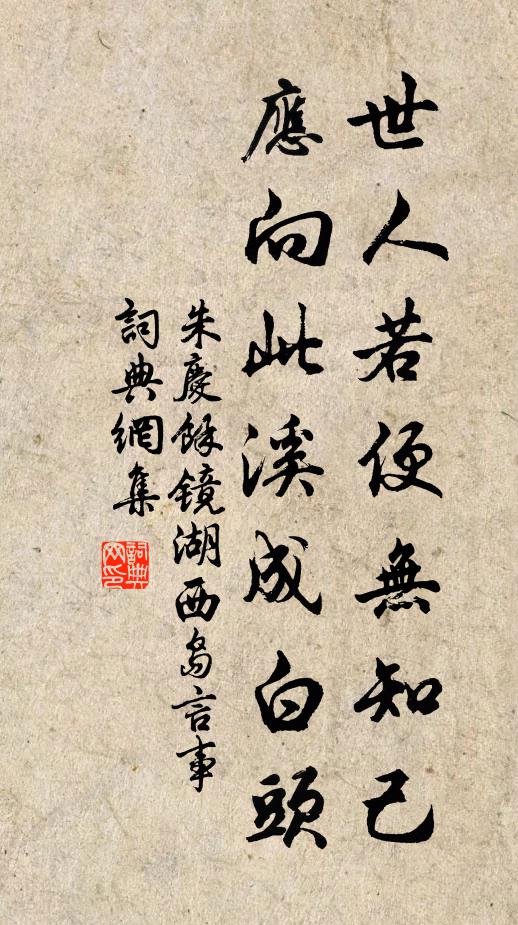 世人若便無知己
應向此溪成白頭
朱慶餘鏡湖西島言事
詞典網集
詞典網印